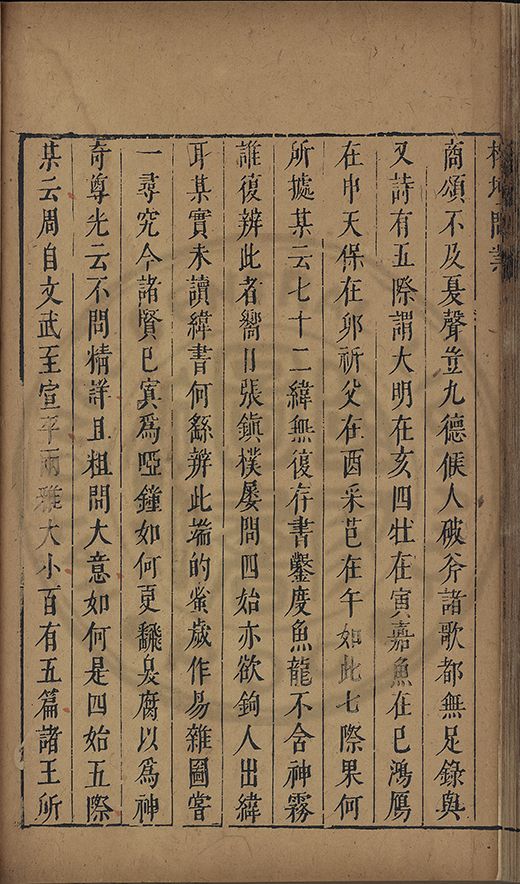 榕壇問業
商頌不及夏聲豈九德候人破斧諸歌都無足錄與
又詩有五際謂大明在亥四牡在寅嘉魚在巳鴻鴈
在申天保在卯祈父在酉采芑在午如此七際果何
所㨿某云七十二緯無復存書鑿度魚龍不舍神霧
誰復辨此者嚮日張鎮樸屢問四始亦欲鉤人出緯
耳某實未讀緯書何繇辨此端的蚤歲作易雜圖嘗
一尋究今諸賢已寘為啞鐘如何更飜臭腐以為神
奇尊光云不問精詳且粗問大意如何是四始五際
某云周自文武至宣平兩雅大小百有五篇諸王所